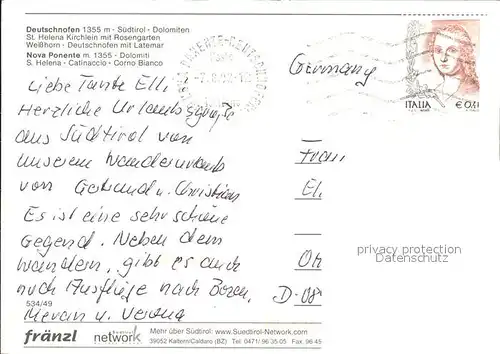 Deutschnofen 1355 m - Südtirol - Dolomiten
St. Helena Kirchlein mit Rosengarten
Weißhorn - Deutschnofen mit Latemar
Nova Ponente m. 1355 - Dolomiti
S. Helena - Catinaccio - Corno Bianco
Germany
ITALIA € 0,41
Liebe Tante Elli
Herzliche Urlaubsgrüße
aus Südtirol von
unserem Wanderurlaub
von Gertrud u. Christian
Es ist eine sehr schöne
Gegend. Neben dem
wandern, gibt es auch
noch Ausflüge nach Bozen,
Meran u. Verona
Frau
El
D-08
privacy protection
Datenschutz
534/49
fränzl
network
Mehr über Südtirol: www.Suedtirol-Network.com
39052 Kaltern/Caldaro (BZ) Tel. 0471/96 35 05 Fax. 96 45